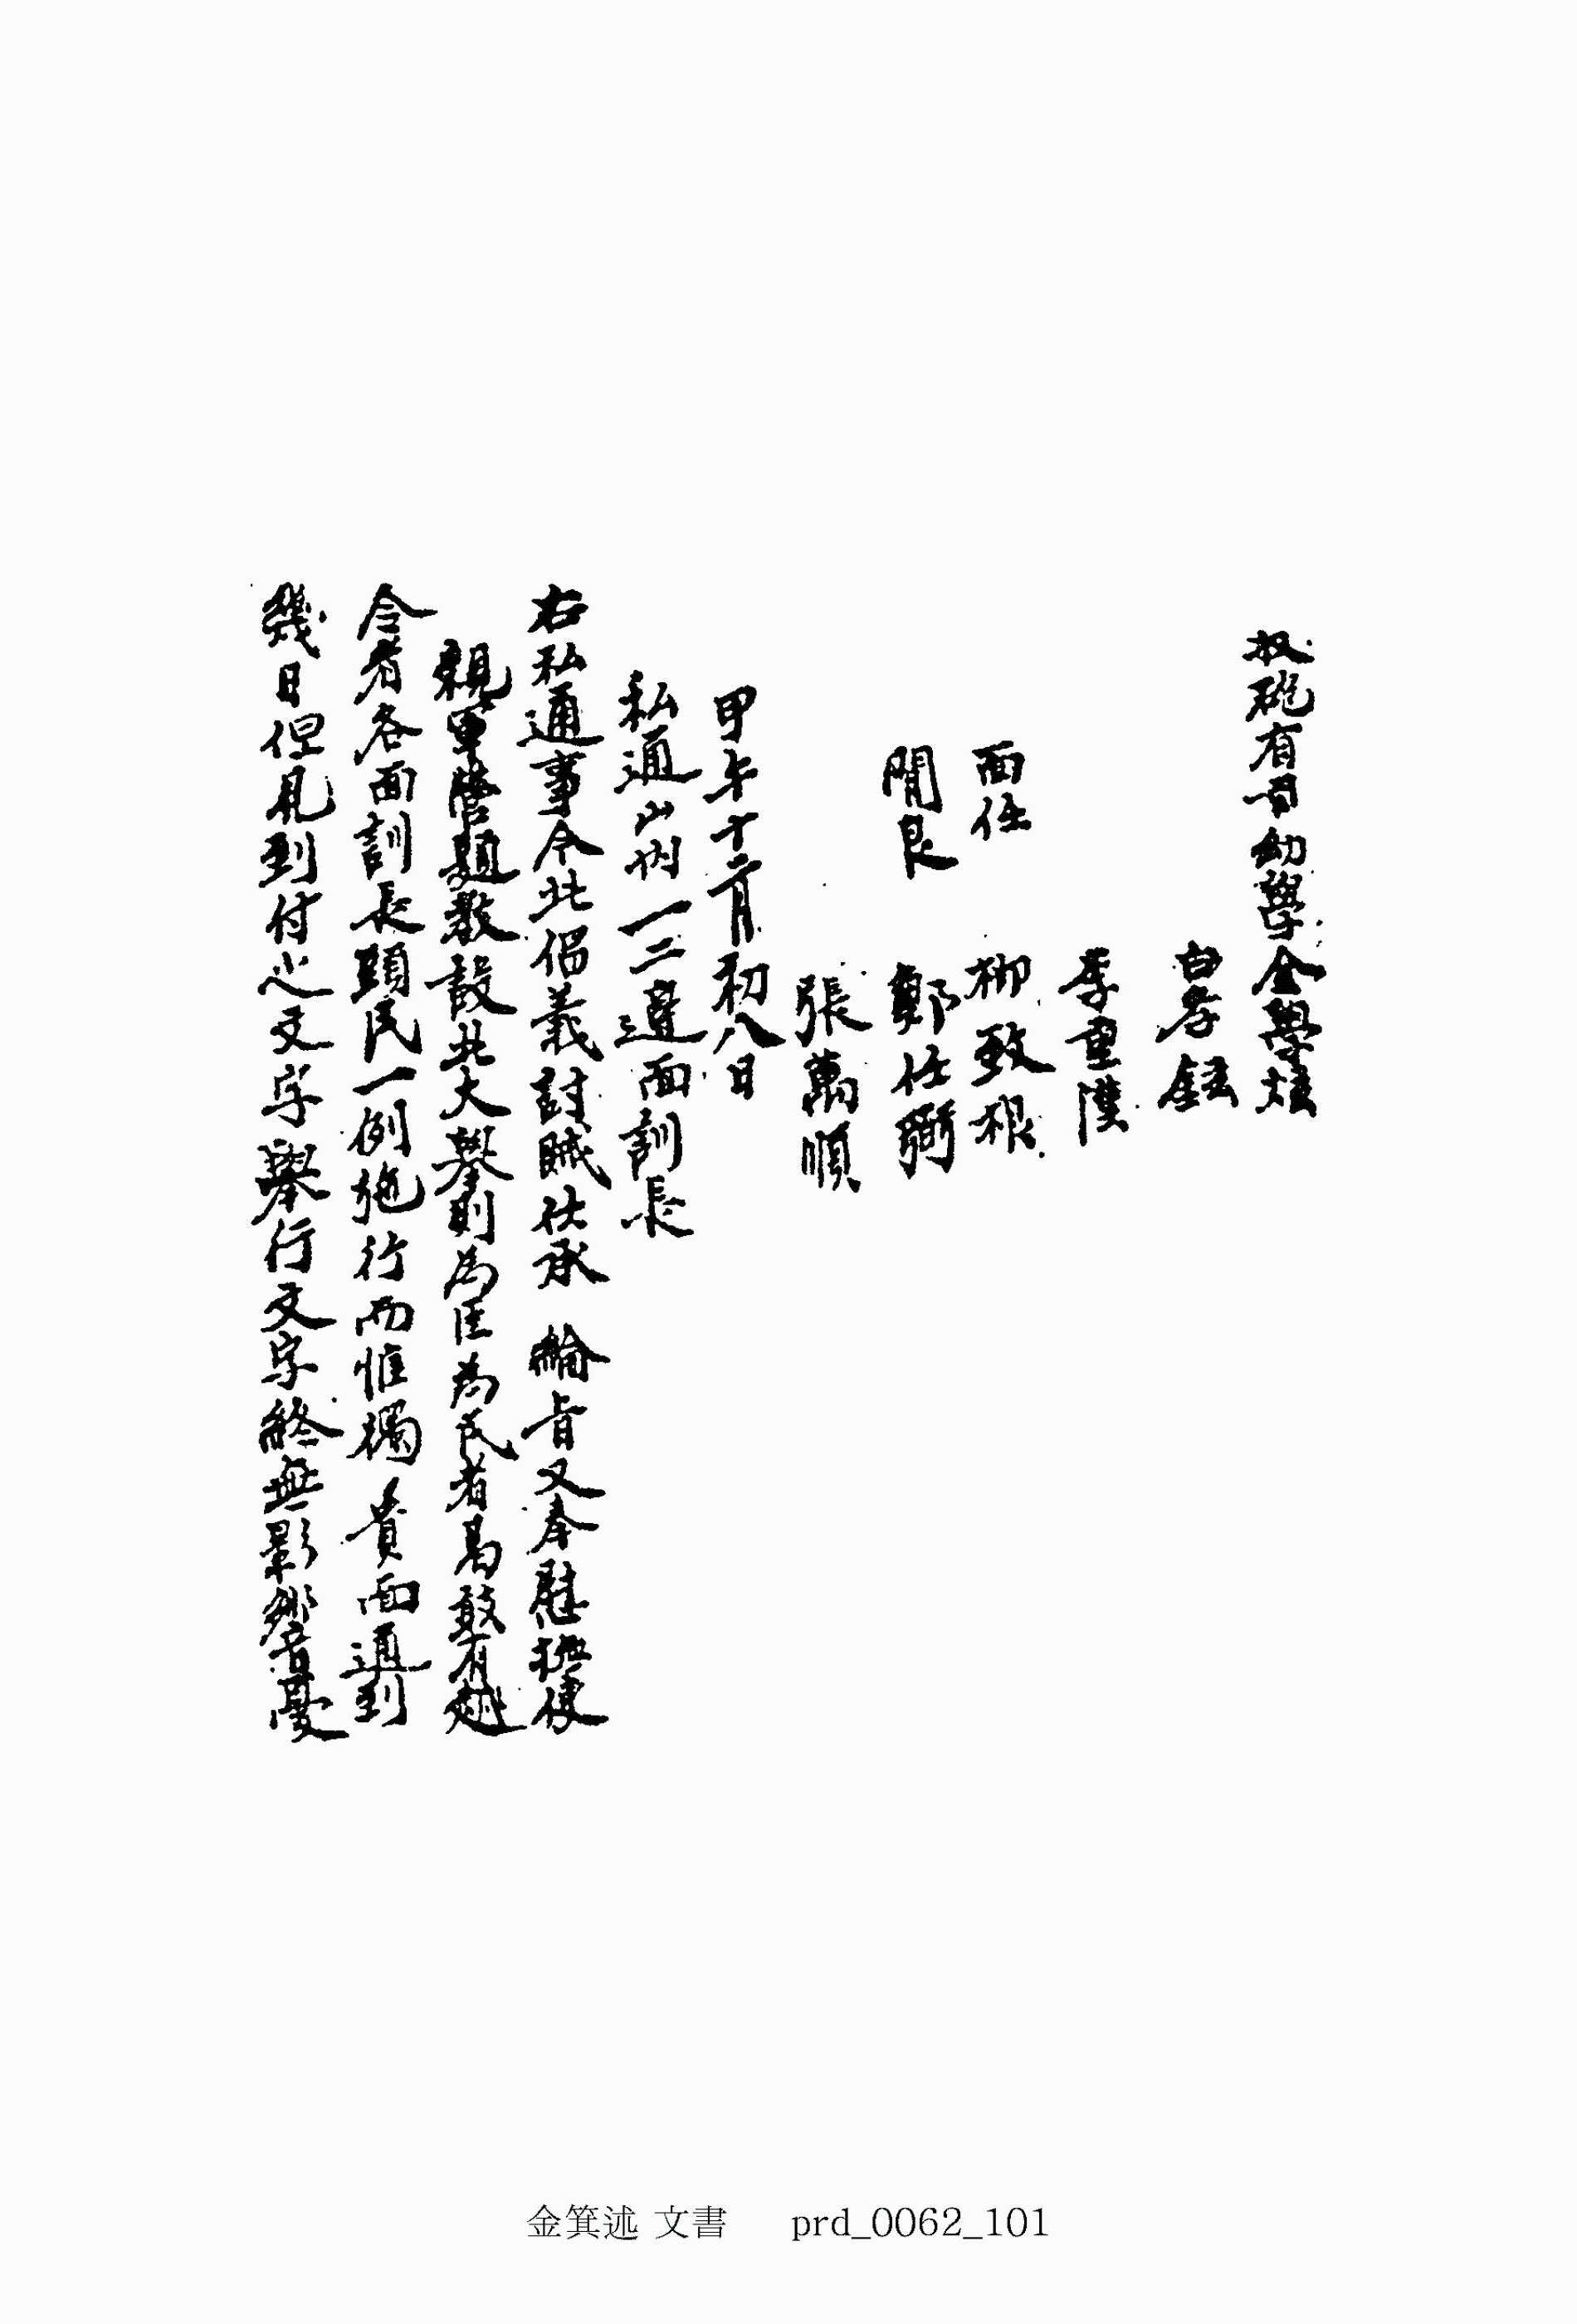 收砲有司幼學金學炫
白孝鉉
李重
面任 柳致根
閒良 鄭仕弼
張萬順
甲午十二月初八日
私通山內一二邊面訓長
右私通事今此倡義討賊仕承 綸音又奉慰撫使
親軍營題教設此大擧則爲臣爲民者曷敢有越
令者各面訓長頭民一例施行而惟獨 貴面通到
幾日但見到付之文字擧行文字終無影響憂
金箕述 文書 prd_0062_101